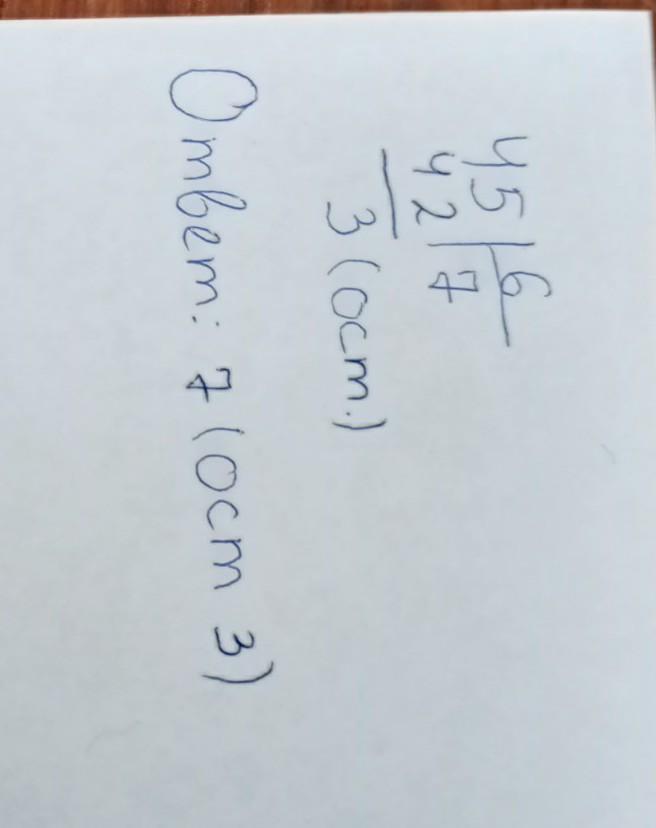 45|6
42|7
3 (ост.)
Ответ: 7 (ост 3)